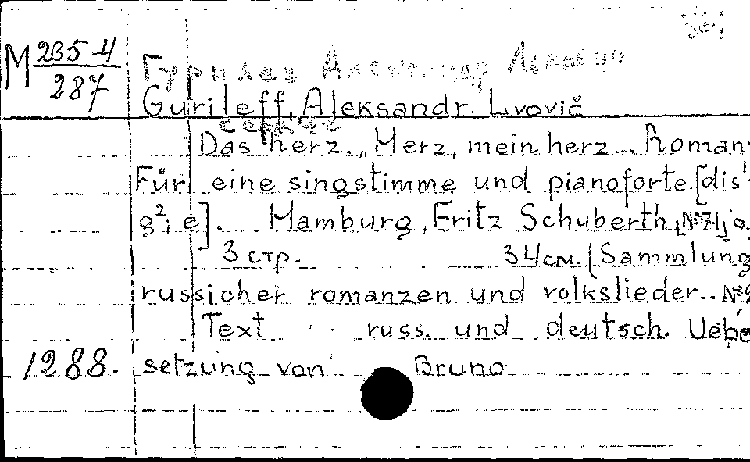 М 235-4
287
Гурилев Александр Львович
Gurileff, Aleksandr Lvovič
Das herz. „Herz, mein herz". Roman
Für eine singstimme und pianoforte [dis'
g²; e]. Hamburg, Fritz Schuberth,
3 стр. 34 см. [Sammlung
russischer romanzen und volkslieder..
Text russ. und deutsch. Uebe
1288. setzung von Bruno